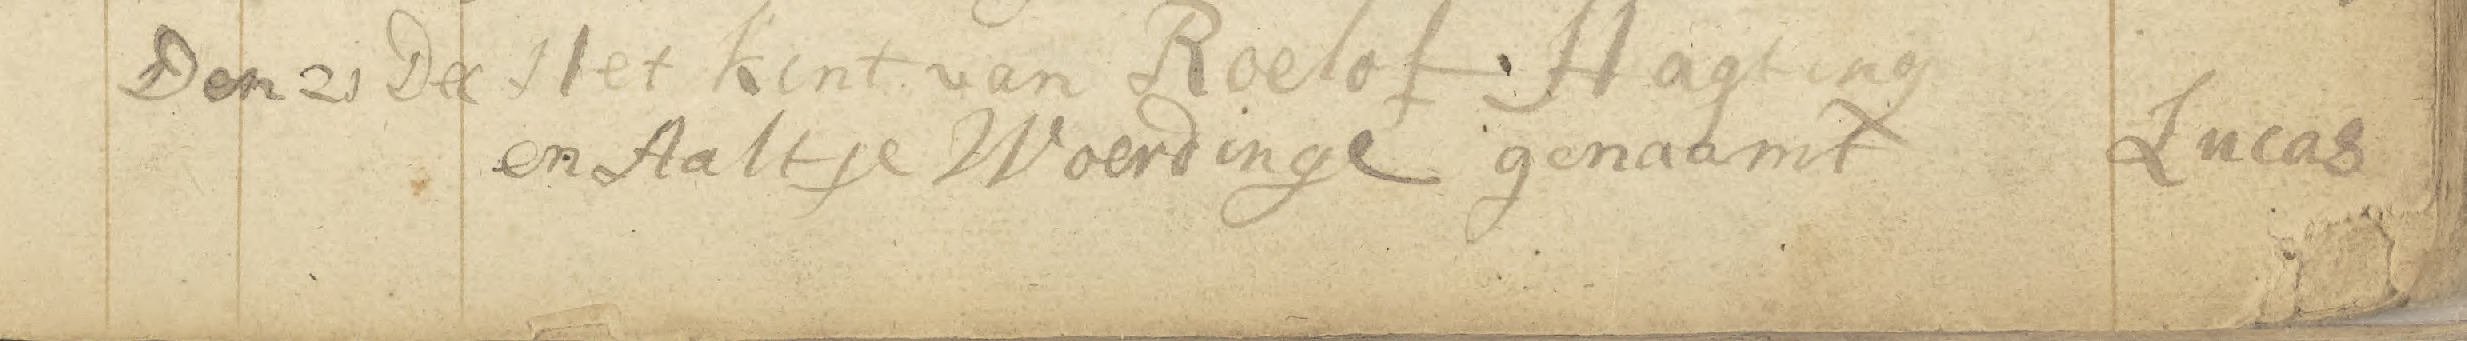 Den 21 Dec Het kint van Roelof Hagting
en Aaltje Woerdinge genaamt Lucas